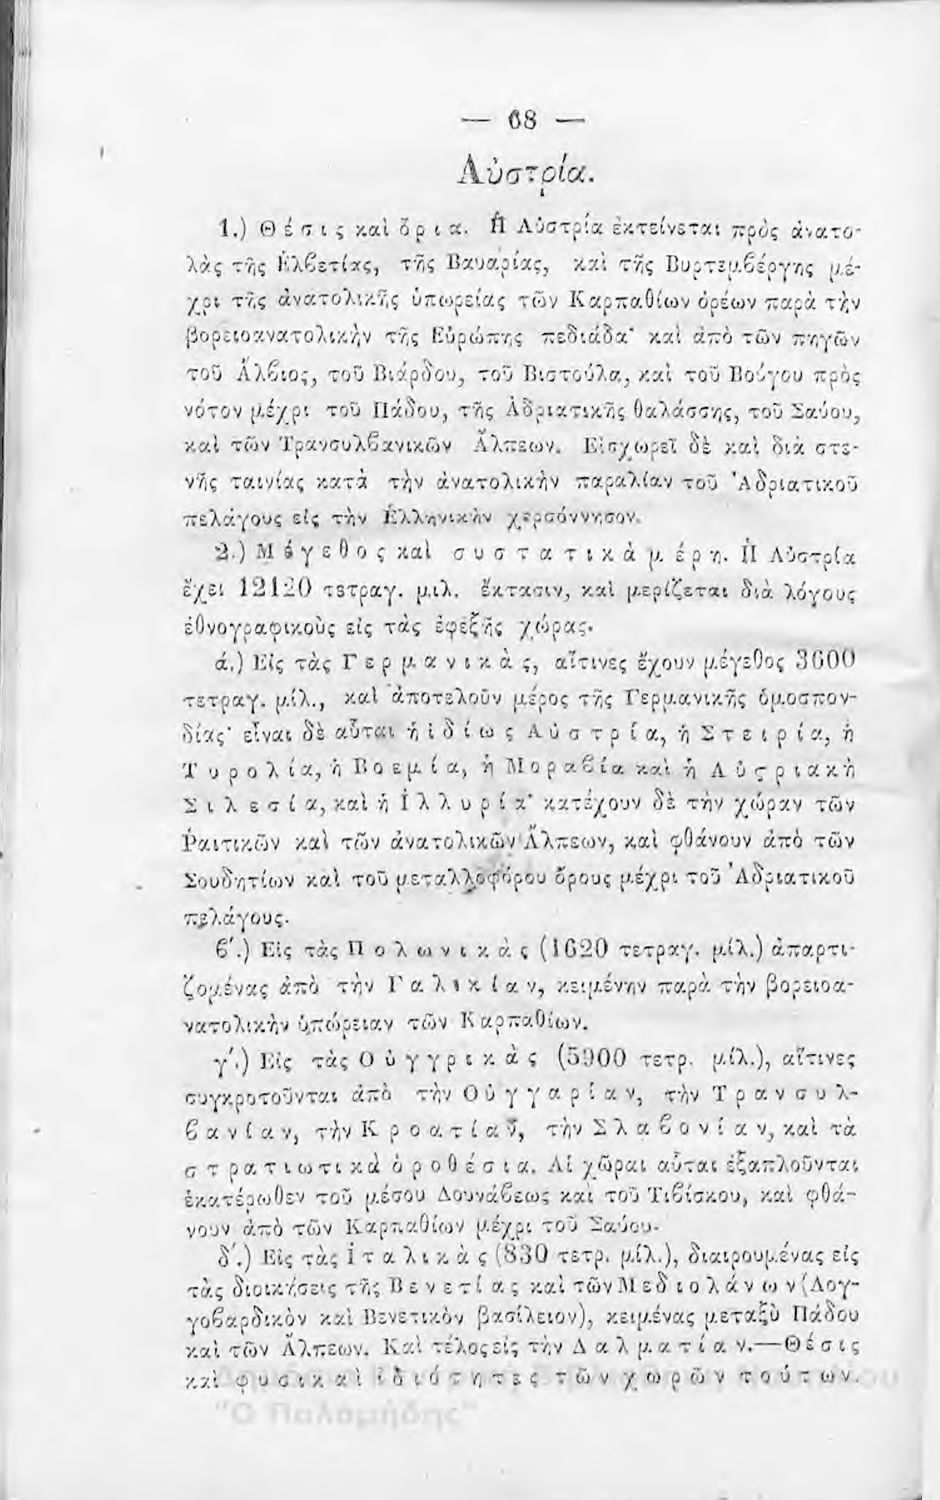 — 68 —
Αὐστρία.
1.) Θέσις καὶ ὅρια. Ἡ Αὐστρία ἐκτείνεται πρὸς ἀνατο-
λὰς τῆς Ἑλβετίας, τῆς Βαυαρίας, καὶ τῆς Βυρτεμβέργης μέ-
χρι τῆς ἀνατολικῆς ὑπωρείας τῶν Καρπαθίων ὀρέων παρὰ τὴν
βορειοανατολικὴν τῆς Εὐρώπης πεδιάδα· καὶ ἀπὸ τῶν πηγῶν
τοῦ Ἄλβιος, τοῦ Βιάρδου, τοῦ Βιστούλα, καὶ τοῦ Βούγου πρὸς
νότον μέχρι τοῦ Πάδου, τῆς Ἀδριατικῆς θαλάσσης, τοῦ Σαύου,
καὶ τῶν Τρανσυλβανικῶν Ἄλπεων. Εἰσχωρεῖ δὲ καὶ διὰ στε-
νῆς ταινίας κατὰ τὴν ἀνατολικὴν παραλίαν τοῦ Ἀδριατικοῦ
πελάγους εἰς τὴν Ἑλληνικὴν χερσόννησον.
2.) Μέγεθος καὶ συστατικὰ μέρη. Ἡ Αὐστρία
ἔχει 12120 τετραγ. μιλ. ἔκτασιν, καὶ μερίζεται διὰ λόγους
ἐθνογραφικοὺς εἰς τὰς ἐφεξῆς χώρας·
ά.) Εἰς τὰς Γερμανικὰς, αἵτινες ἔχουν μέγεθος 3600
τετραγ. μίλ., καὶ ἀποτελοῦν μέρος τῆς Γερμανικῆς ὁμοσπον-
δίας· εἶναι δὲ αὗται ἡ ἰδίως Αὐστρία, ἡ Στειρία, ἡ
Τυρολία, ἡ Βοεμία, ἡ Μοραβία καὶ ἡ Αὐςριακὴ
Σιλεσία, καὶ ἡ Ἰλλυρία· κατέχουν δὲ τὴν χώραν τῶν
Ῥαιτικῶν καὶ τῶν ἀνατολικῶν Ἄλπεων, καὶ φθάνουν ἀπὸ τῶν
Σουδητίων καὶ τοῦ μεταλλοφόρου ὄρους μέχρι τοῦ Ἀδριατικοῦ
πελάγους.
β΄.) Εἰς τὰς Πολωνικὰς (1620 τετραγ. μίλ.) ἀπαρτι-
ζομένας ἀπὸ τὴν Γαλικίαν, κειμένην παρὰ τὴν βορειοα-
νατολικὴν ὑπώρειαν τῶν Καρπαθίων.
γ΄.) Εἰς τὰς Οὐγγρικὰς (5900 τετρ. μίλ.), αἵτινες
συγκροτοῦνται ἀπὸ τὴν Οὐγγαρίαν, τὴν Τρανσυλ-
βανίαν, τὴν Κροατίαν, τὴν Σλαβονίαν, καὶ τὰ
στρατιωτικὰ ὁροθέσια. Αἱ χῶραι αὗται ἐξαπλοῦνται
ἑκατέρωθεν τοῦ μέσου Δουνάβεως καὶ τοῦ Τιβίσκου, καὶ φθά-
νουν ἀπὸ τῶν Καρπαθίων μέχρι τοῦ Σαύου.
δ΄.) Εἰς τὰς Ἰταλικὰς (830 τετρ. μίλ.), διαιρουμένας εἰς
τὰς διοικήσεις τῆς Βενετίας καὶ τῶν Μεδιολάνων (Λογ-
γοβαρδικὸν καὶ Βενετικὸν βασίλειον), κειμένας μεταξὺ Πάδου
καὶ τῶν Ἄλπεων. Καὶ τέλος εἰς τὴν Δαλματίαν.—Θέσις
καὶ φυσικαὶ ἰδιότητες τῶν χωρῶν τούτων.
"Ο Παλαμήδης"